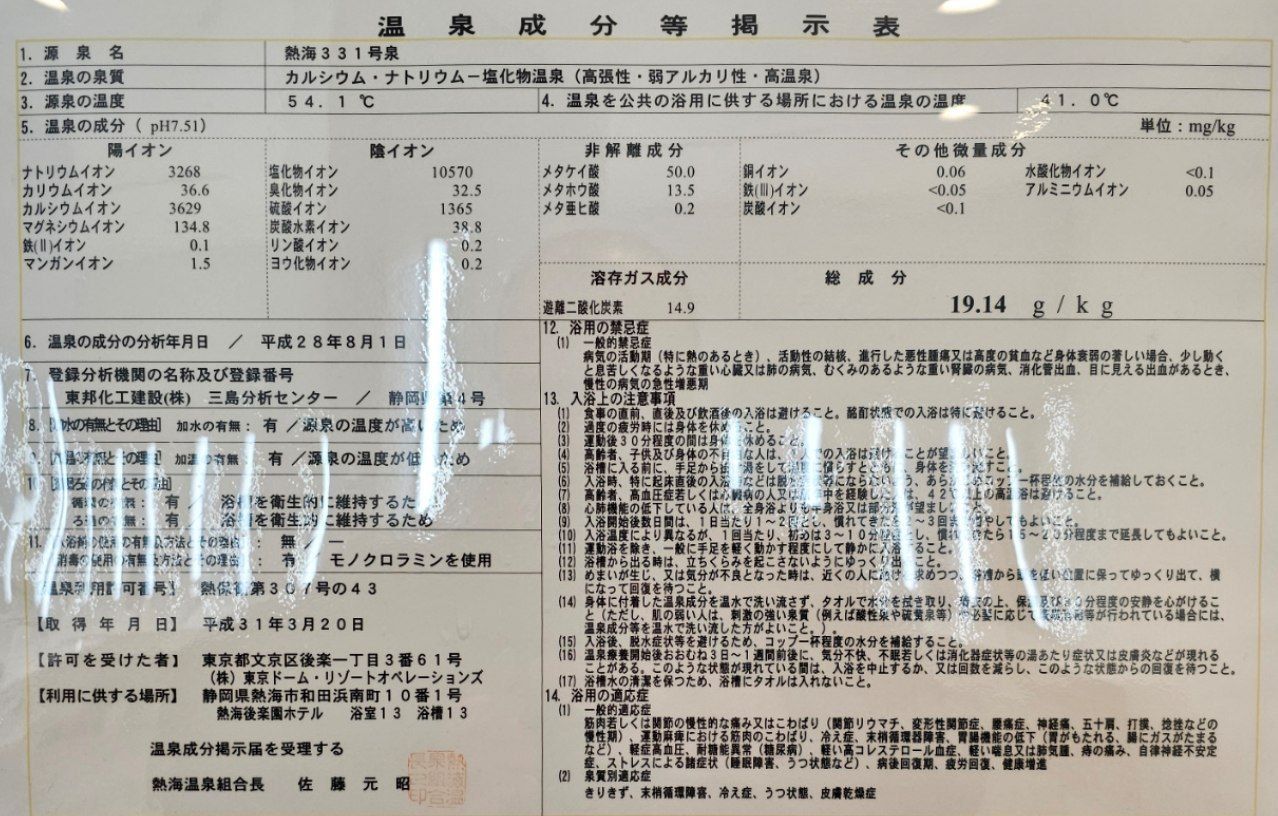 温泉成分等掲示表
1. 源泉名 熱海331号泉
2. 温泉の泉質 カルシウム・ナトリウムー塩化物温泉（高張性・弱アルカリ性・高温泉）
3. 源泉の温度 54.1℃ 4. 温泉を公共の浴用に供する場所における温泉の温度 41.0℃
5. 温泉の成分（ pH7.51） 単位：mg/kg
陽イオン 陰イオン 非解離成分 その他微量成分
ナトリウムイオン 3268 塩化物イオン 10570 メタケイ酸 50.0 銅イオン 0.06 水酸化物イオン <0.1
カリウムイオン 36.6 臭化物イオン 32.5 メタホウ酸 13.5 鉄(Ⅲ)イオン <0.05 アルミニウムイオン 0.05
カルシウムイオン 3629 硫酸イオン 1365 メタ亜ヒ酸 0.2 炭酸イオン <0.1
マグネシウムイオン 134.8 炭酸水素イオン 38.8
鉄(Ⅱ)イオン 0.1 リン酸イオン 0.2
マンガンイオン 1.5 ヨウ化物イオン 0.2
溶存ガス成分 総成分
遊離二酸化炭素 14.9 19.14 g/kg
6. 温泉の成分の分析年月日 ／ 平成28年8月1日
7. 登録分析機関の名称及び登録番号
東邦化工建設(株) 三島分析センター ／ 静岡県第4号
加水の有無： 有 ／源泉の温度が高いため
加温の有無： 有 ／源泉の温度が低いため
有 ／ 浴槽を衛生的に維持するため
有 ／ 浴槽を衛生的に維持するため
11. 無 ／ ―
有 モノクロラミンを使用
【温泉利用許可番号】 熱保衛第307号の43
【取得年月日】 平成31年3月20日
【許可を受けた者】 東京都文京区後楽一丁目3番61号
（株）東京ドーム・リゾートオペレーションズ
【利用に供する場所】 静岡県熱海市和田浜南町10番1号
熱海後楽園ホテル 浴室13 浴槽13
温泉成分掲示届を受理する
熱海温泉組合長 佐藤元昭
12. 浴用の禁忌症
(1) 一般的禁忌症
病気の活動期（特に熱のあるとき）、活動性の結核、進行した悪性腫瘍又は高度の貧血など身体衰弱の著しい場合、少し動く
と息苦しくなるような重い心臓又は肺の病気、むくみのあるような重い腎臓の病気、消化管出血、目に見える出血があるとき、
慢性の病気の急性増悪期
13. 入浴上の注意事項
(1) 食事の直前、直後及び飲酒後の入浴は避けること。酩酊状態での入浴は特に避けること。
(2) 過度の疲労時には身体を休めること。
(3) 運動後30分程度の間は身体を休めること。
(4) 高齢者、子供及び身体の不自由な人は、1人での入浴は避けることが望ましいこと。
(5) 浴槽に入る前に、手足から 身体を
(6) 入浴時、特に起床直後の コップ一杯程度の水分を補給しておくこと。
(7) 高齢者、高血圧症若しくは心臓病の人又は 経験した人は、42℃以上の高温浴は避けること。
(8) 心肺機能の低下している人は、全身浴よりも半身浴又は部分浴が望ましいこと。
(9) 入浴開始後数日間は、1日当たり1～2回とし、慣れてきたら2～3回まで増やしてもよいこと。
(10) 入浴温度により異なるが、1回当たり、初めは3～10分程度とし、慣れてきたら15～20分程度まで延長してもよいこと。
(11) 運動浴を除き、一般に手足を軽く動かす程度にして静かに入浴すること。
(12) 浴槽から出る時は、立ちくらみを起こさないようにゆっくり出ること。
(13) めまいが生じ、又は気分が不良となった時は、近くの人に助けを求めつつ、浴槽から頭を低い位置に保ってゆっくり出て、横
になって回復を待つこと。
(14) 身体に付着した温泉成分を温水で洗い流さず、タオルで水分を拭き取り、着衣の上、保温及び30分程度の安静を心がけるこ
と（ただし、肌の弱い人は、刺激の強い泉質（例えば酸性泉や硫黄泉等）や必要に応じて が行われている場合には、
温泉成分等を温水で洗い流した方がよいこと。）
(15) 入浴後、脱水症状等を避けるため、コップ一杯程度の水分を補給すること。
(16) 温泉療養開始後おおむね3日～1週間前後に、気分不快、不眠若しくは消化器症状等の湯あたり症状又は皮膚炎などが現れる
ことがある。このような状態が現れている間は、入浴を中止するか、又は回数を減らし、このような状態からの回復を待つこと。
(17) 浴槽水の清潔を保つため、浴槽にタオルは入れないこと。
14. 浴用の適応症
(1) 一般的適応症
筋肉若しくは関節の慢性的な痛み又はこわばり（関節リウマチ、変形性関節症、腰痛症、神経痛、五十肩、打撲、捻挫などの
慢性期）、運動麻痺における筋肉のこわばり、冷え症、末梢循環障害、胃腸機能の低下（胃がもたれる、腸にガスがたまる
など）、軽症高血圧、耐糖能異常（糖尿病）、軽い高コレステロール血症、軽い喘息又は肺気腫、痔の痛み、自律神経不安定
症、ストレスによる諸症状（睡眠障害、うつ状態など）、病後回復期、疲労回復、健康増進
(2) 泉質別適応症
きりきず、末梢循環障害、冷え症、うつ状態、皮膚乾燥症